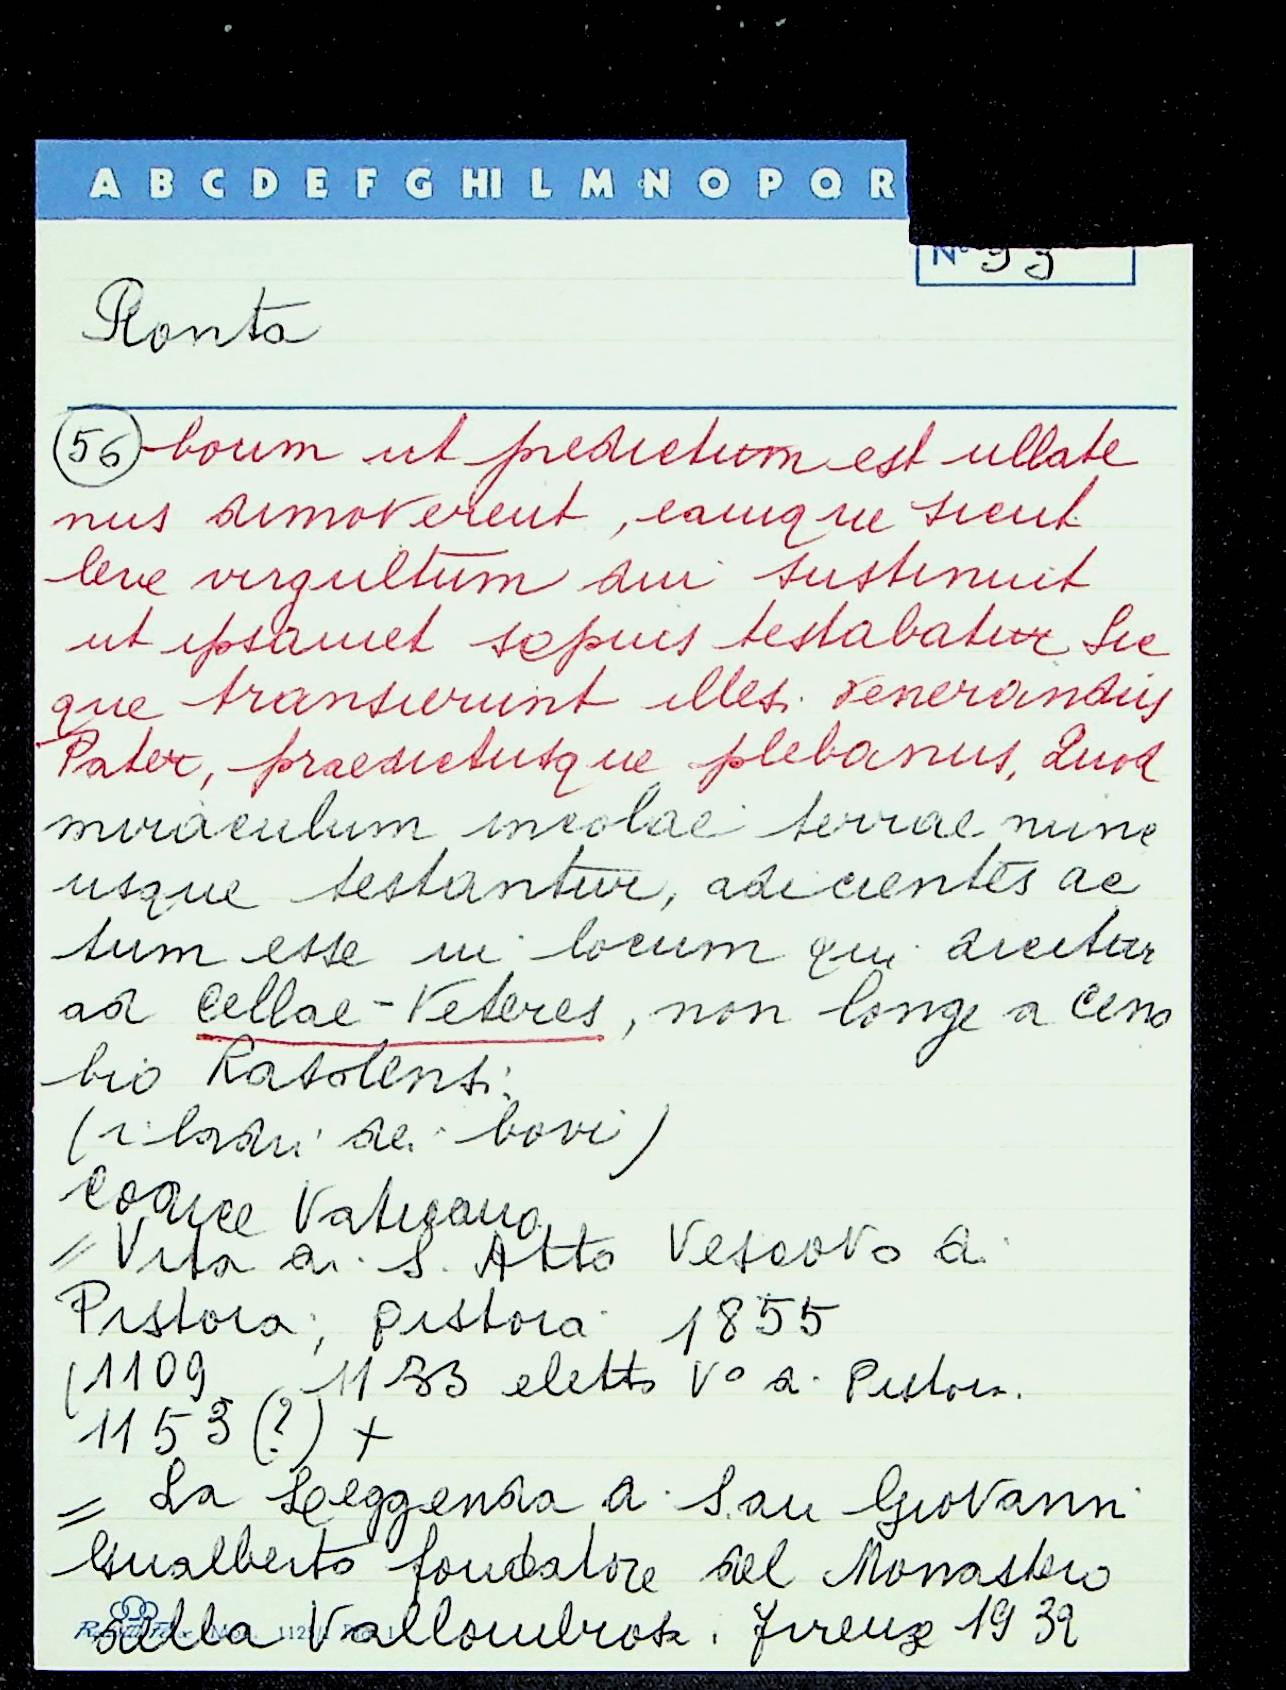 A B C D E F G HI L M N O P Q R
N° 99
Ronta
56 boum ut predictum est ullate
nus dimoverent, eamque sicut
leve virgultum diu sustinuit
ut ipsamet sepius testabatur Sic
que transierunt illesi venerandus
Pater, praedictusque plebanus, Quod
miraculum incolae terrae nunc
usque testantur, adicientes ac
tum esse in locum qui dicitur
ad Cellae-Veteres, non longe a Ceno
bio Rasolensi.
(i ladri dei bovi)
Codice Vaticano
= Vita di S. Atto Vescovo di
Pistoia; pistoia 1855
(1109 1133 eletto V° di Pistoia.
1153(?) +
= La Leggenda di San Giovanni
Gualberto fondatore del Monastero
della Vallombrosa. Firenze 1932